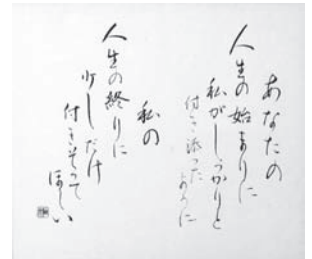 あなたの
人生の始まりに
私がしっかりと
付き添った
ように
私の
人生の終りに
少しだけ
付きそって
ほしい